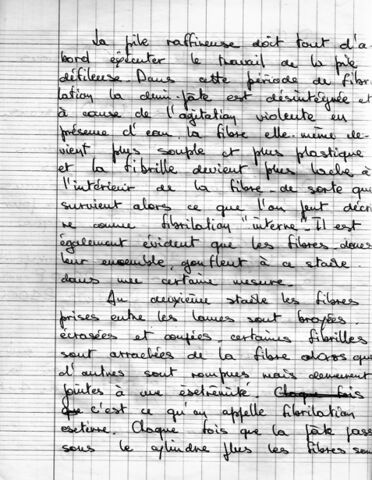 La pile raffineuse doit tout d'a-
bord exécuter le travail de la pile
défileuse. Dans cette période de fibri
lation la demi-pâte est désintégrée et
à cause de l'agitation violente en
présence d'eau, la fibre elle-même de-
vient plus souple et plus plastique
et la fibrille devient plus lache à
l'intérieur de la fibre. de sorte que
survient alors ce que l'on peut décri
re comme fibrilation "interne". Il est
également évident que les fibres dans
leur ensemble, gonflent à ce stade
dans une certaine mesure.
Au deuxième stade les fibres
prises entre les lames sont broyées.
écrasées et coupées. certaines fibrilles
sont arrachées de la fibre alors que
d'autres sont rompues mais demeurent
jointes à une esctrémité. Chaque fois
que c'est ce qu'on appelle fibrilation
escterne. Chaque fois que la pâte pass
sous le cylindre plus les fibres son